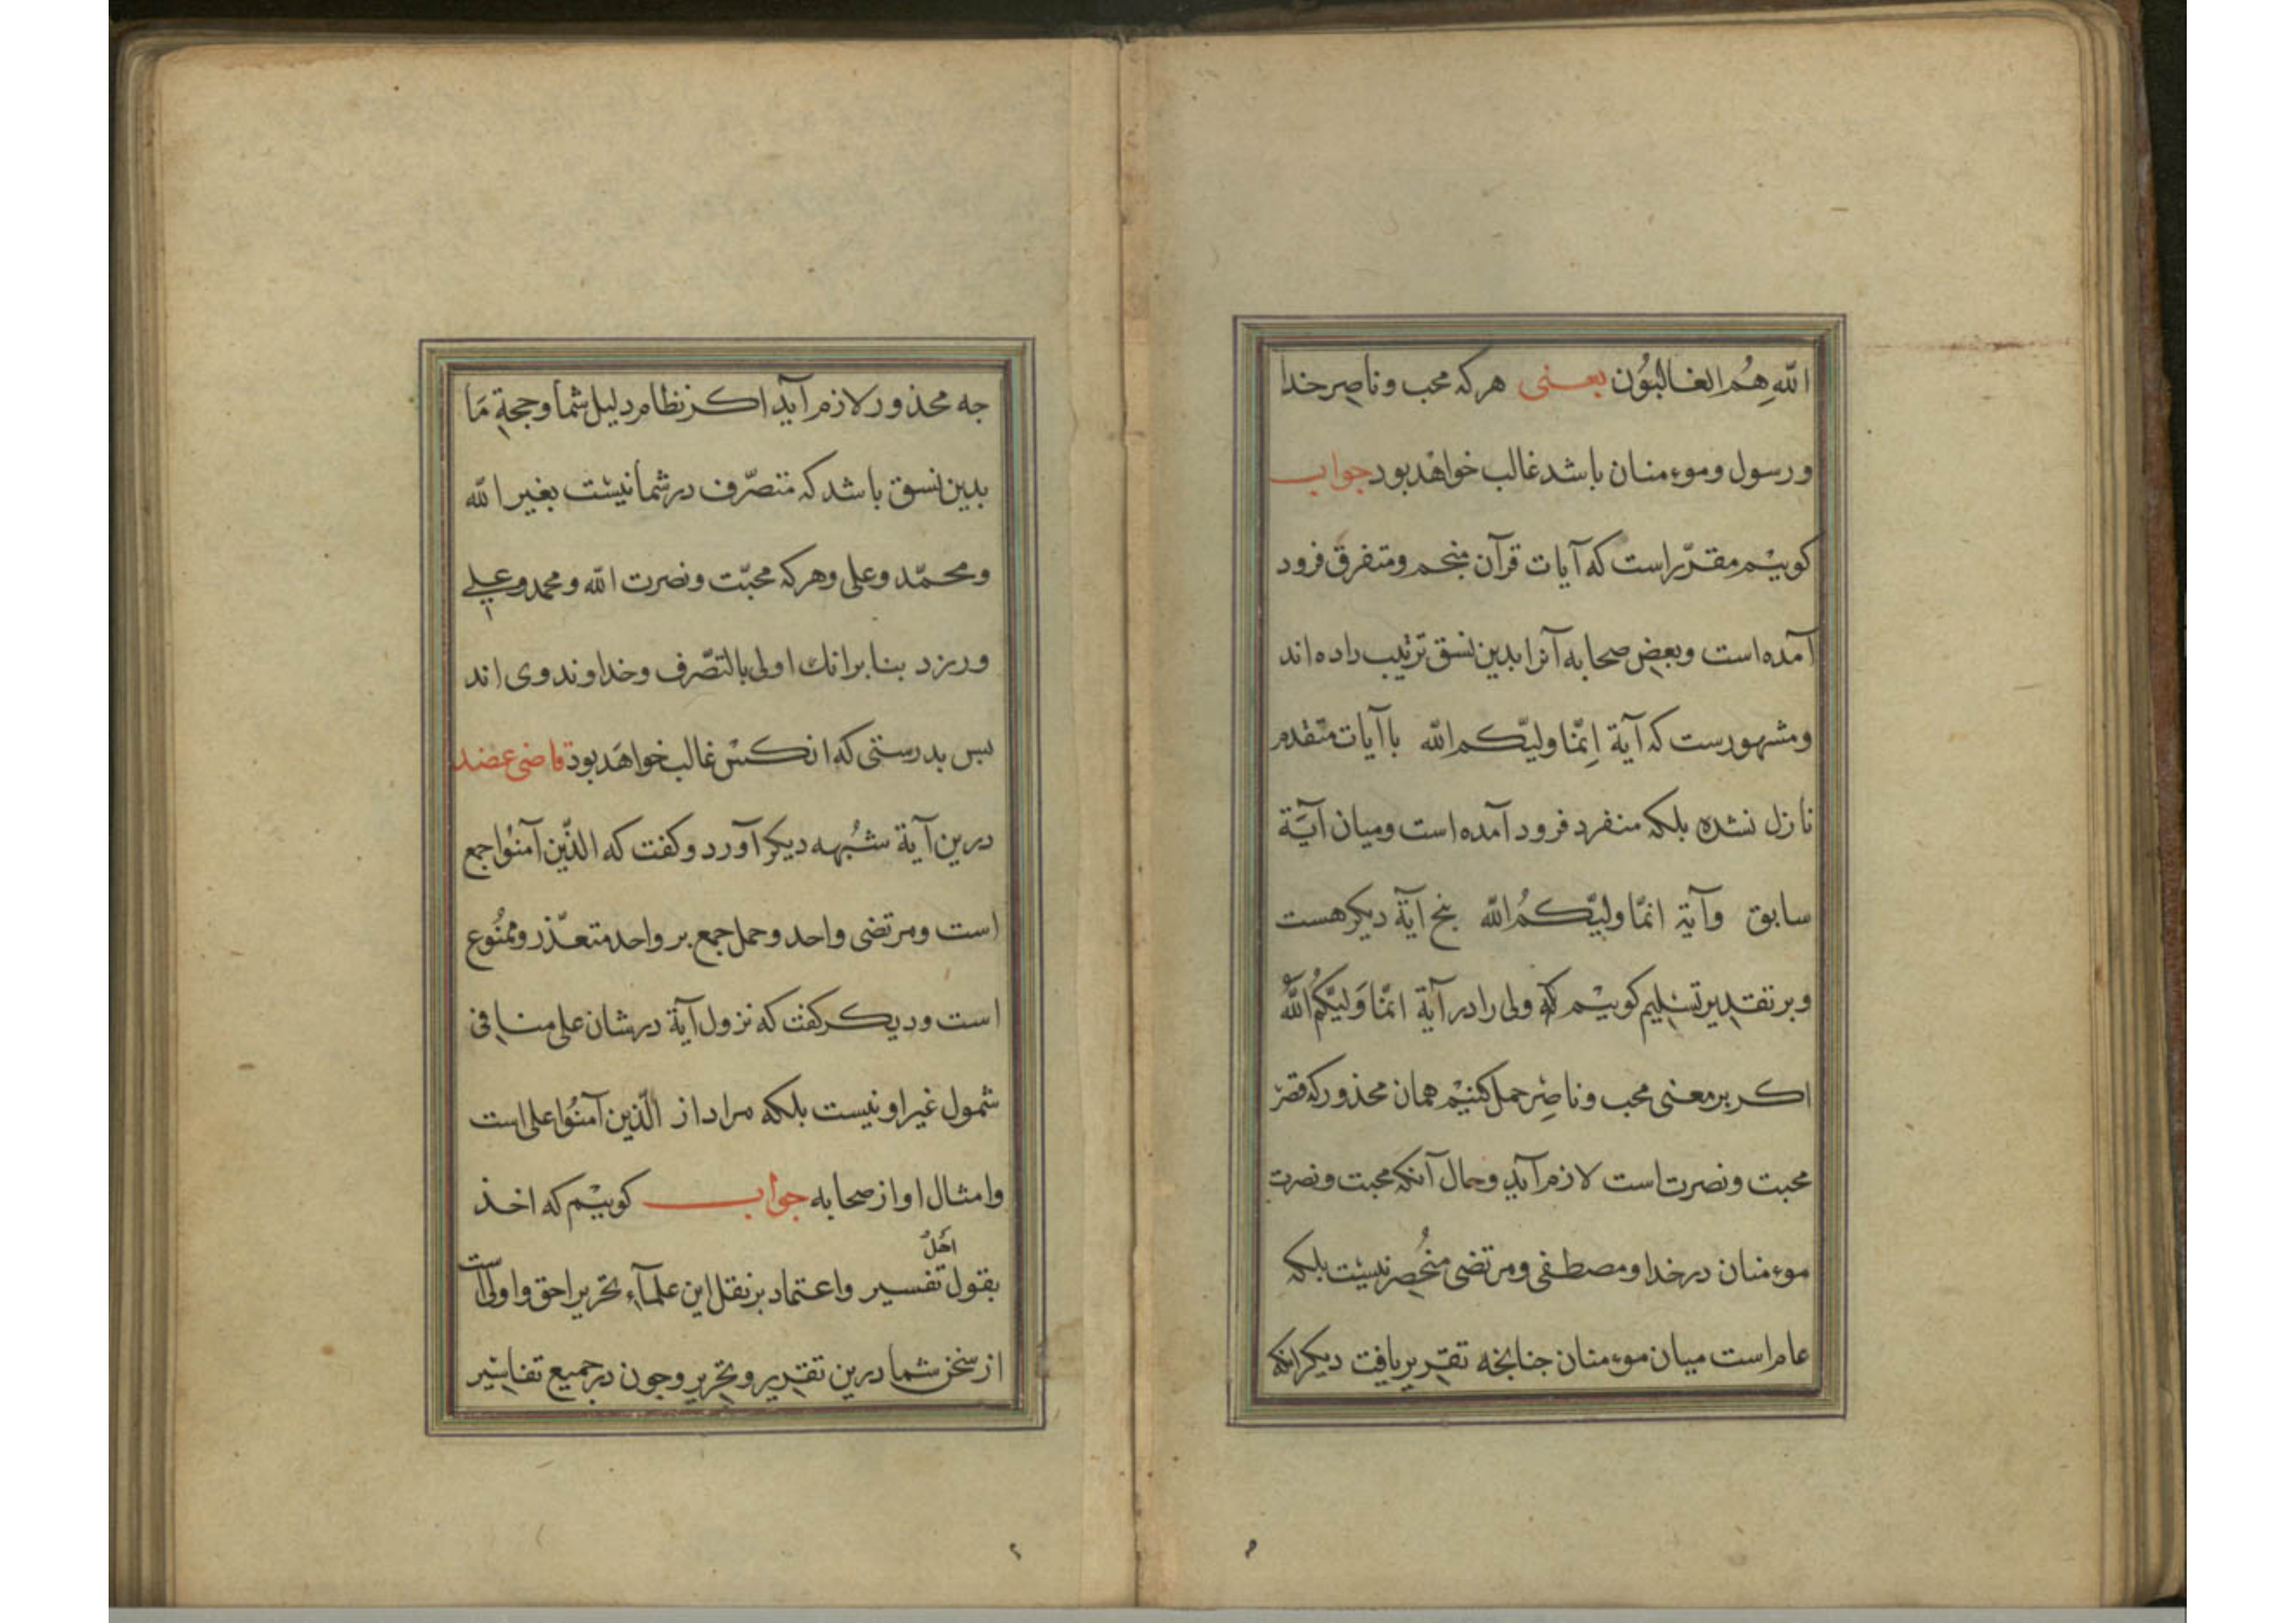 الله هُمُ الغالبُون یعنی هرکه محب و ناصر خدا
و رسول و موءمنان باشد غالب خواهد بود جواب
کوییم مقرّر است که آیات قرآن منجم و متفرق فرود
آمده است و بعض صحابه آنرا بدین نسق ترتیب داده اند
و مشهورست که آیة اِنّما ولیّکم الله با آیات متقدم
نازل نشده بلکه منفرد فرود آمده است و میان آیة
سابق و آیة انمّا ولیّکمُ الله پنج آیة دیکر هست
و بر تقدیر تسلیم کوییم که ولی را در آیة انمّا وَلیّکُم اللهُ
اکر بر معنی محب و ناصِر حمل کنیم همان محذور که قصر
محبت و نصرت است لازم آید و حال آنکه محبت و نصرت
موءمنان در خدا و مصطفی و مرتضی منحُصر نیست بلکه
عام است میان موءمنان جنانجه تقریر یافت دیکر انکه
جه محذور لازم آید اکر نظام دلیل شما و حجة مَا
بدین نسق باشد که متصرّف در شما نیست بغیر الله
و محمّد و علی و هرکه محبّت و نصرت الله و محمد و علی
ورزد بنا بر انك اولی بالتصّرف و خداوند وی اند
بس بدرستی که انکس غالب خواهَد بود قاضی عضد
درین آیة شُبهه دیکر آورد و کفت که الذّین آمنوا جمع
است و مرتضی واحد و حمل جمع بر واحد متعذّر و ممنُوع
است و دیکر کفت که نزول آیة در شان علی منافی
شمول غیر او نیست بلکه مراد از الّذین آمنُوا علی است
و امثال او از صحابه جواب کوییم که اخذ
بقول اَهلُ تفسیر و اعتماد بر نقل این علمآء نحریر احق و اولی است
از سخن شما درین تقدیر و تحریر و جون در جمیع تفاسیر